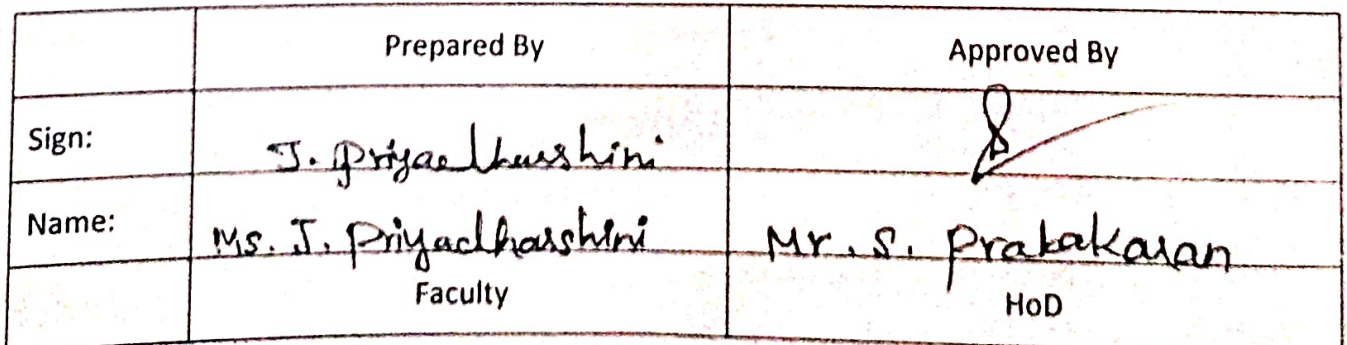 Prepared By Approved By
Sign: J. Priyadharshini
Name: Ms. J. Priyadharshini Mr. S. Prabakaran
Faculty HoD